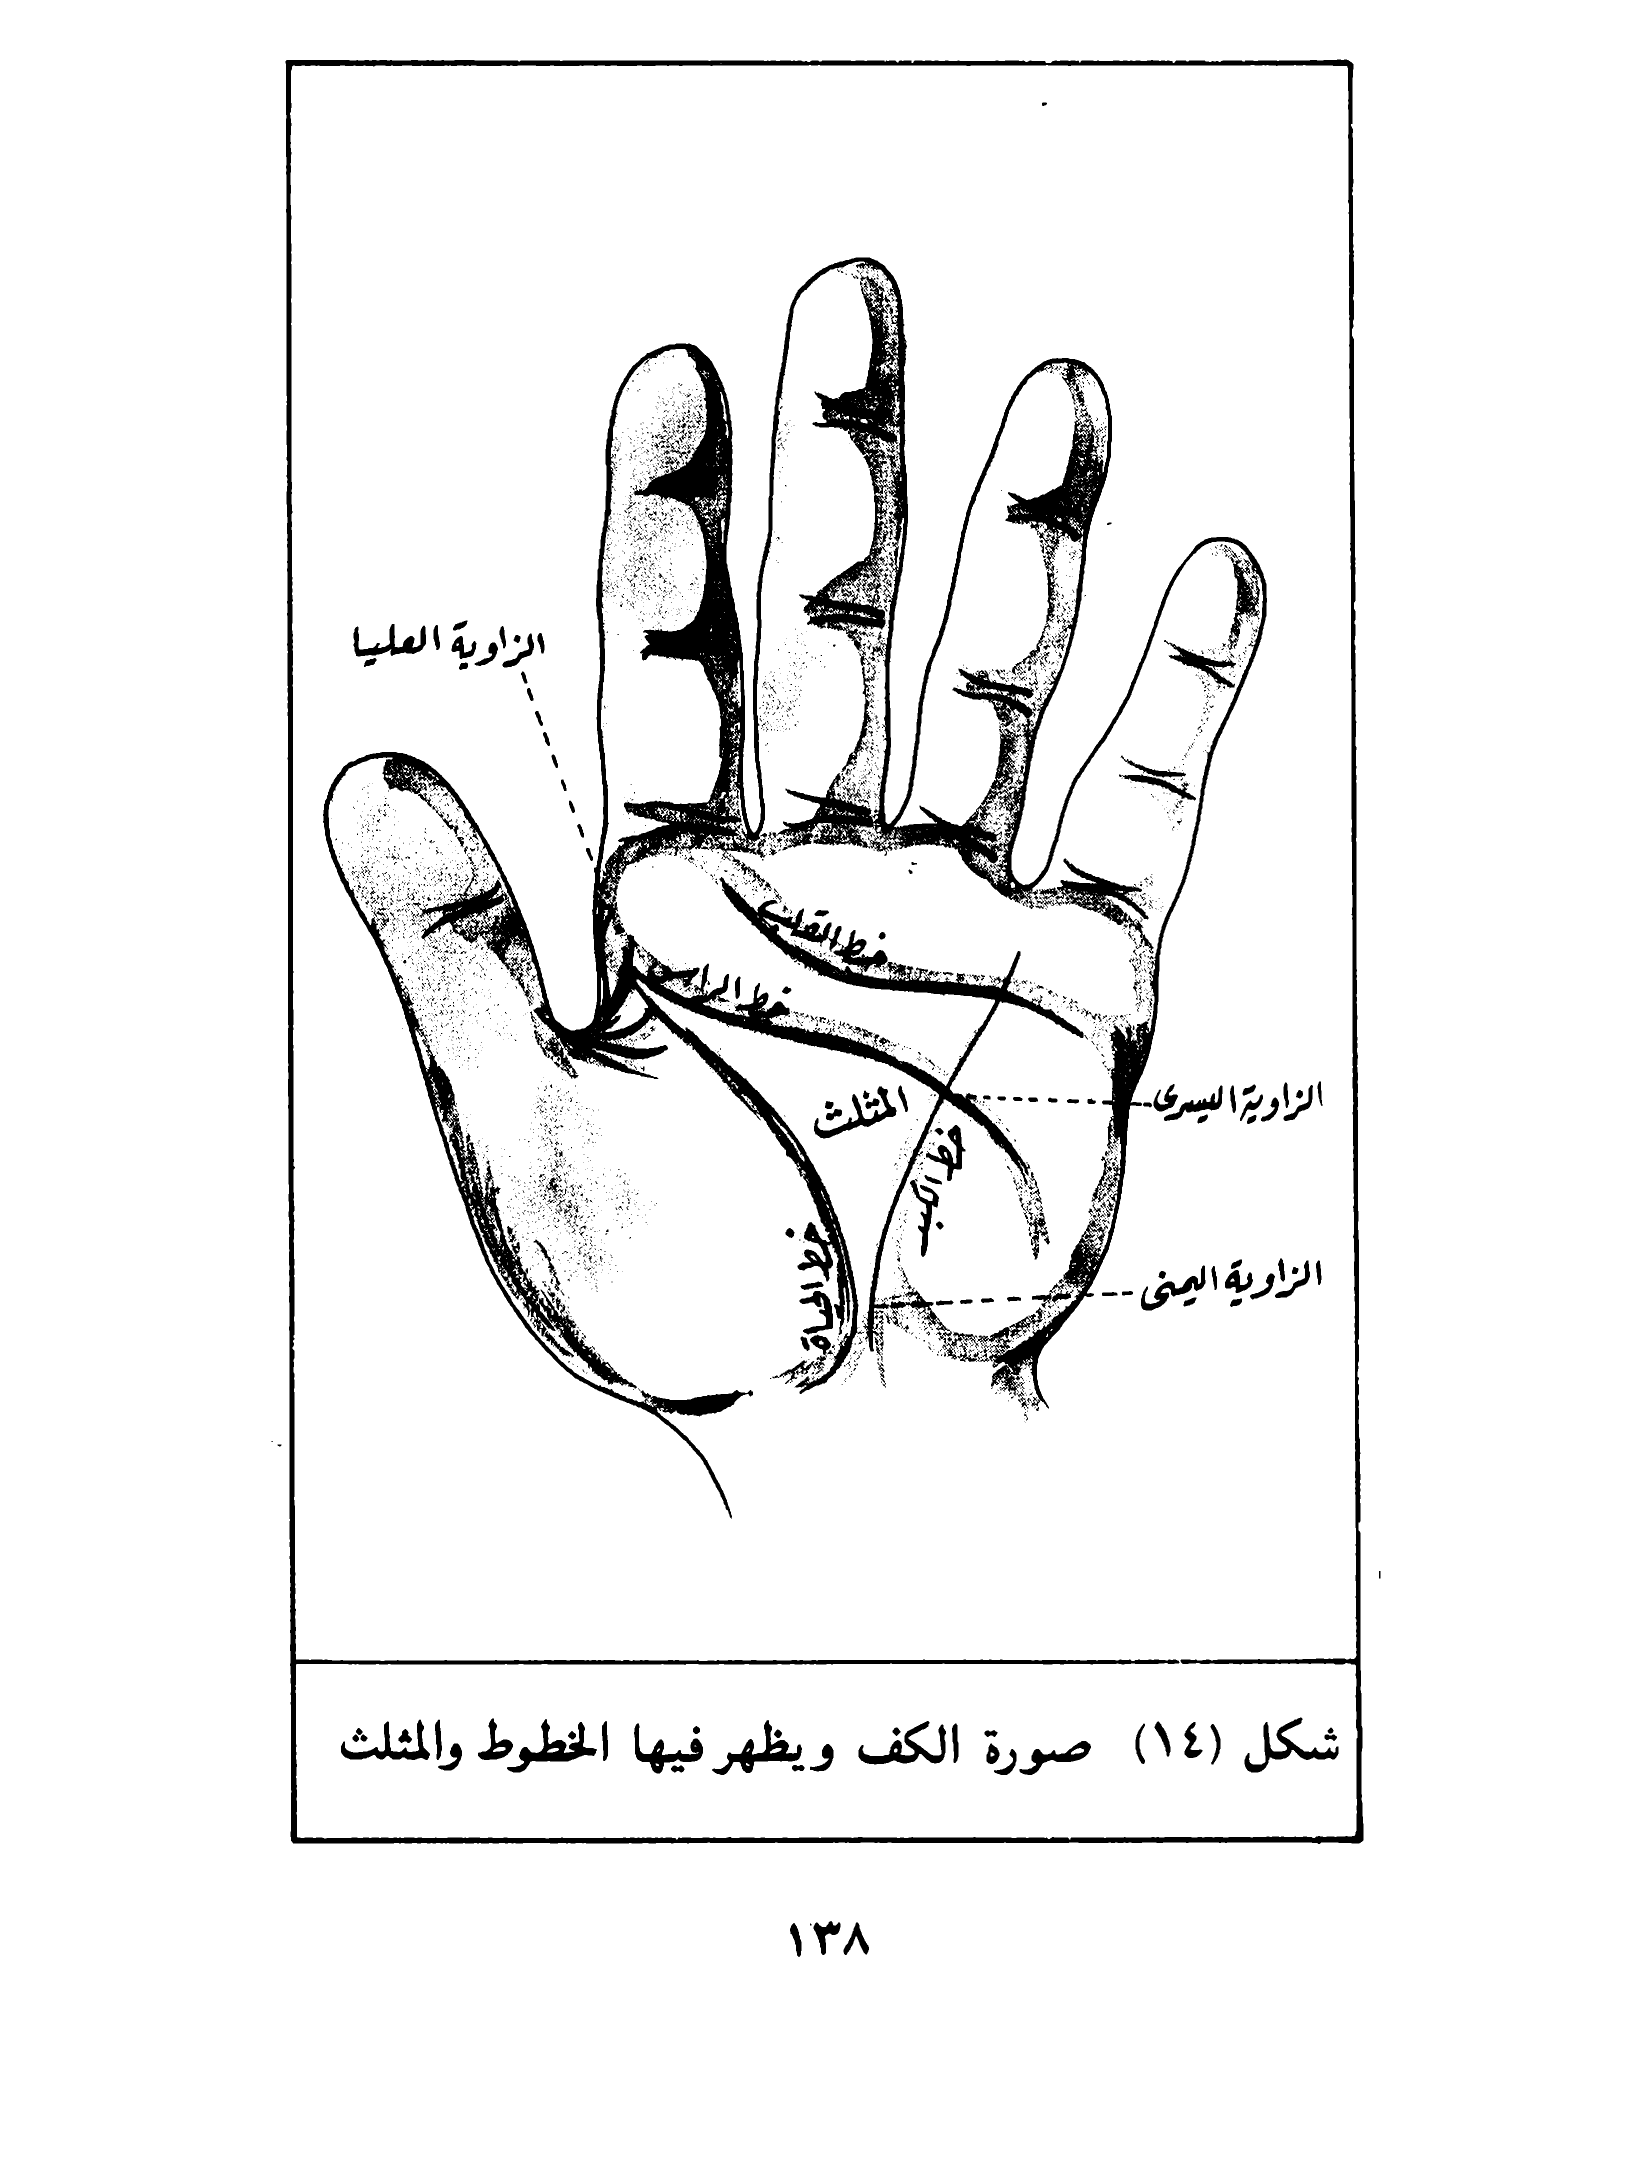 الزاوية العليا
خط القلب
خط الراس
المثلث
الزاوية اليسرى
خط الكبد
خط الحياة
الزاوية اليمنى
شكل (١٤) صورة الكف ويظهر فيها الخطوط والمثلث
١٣٨